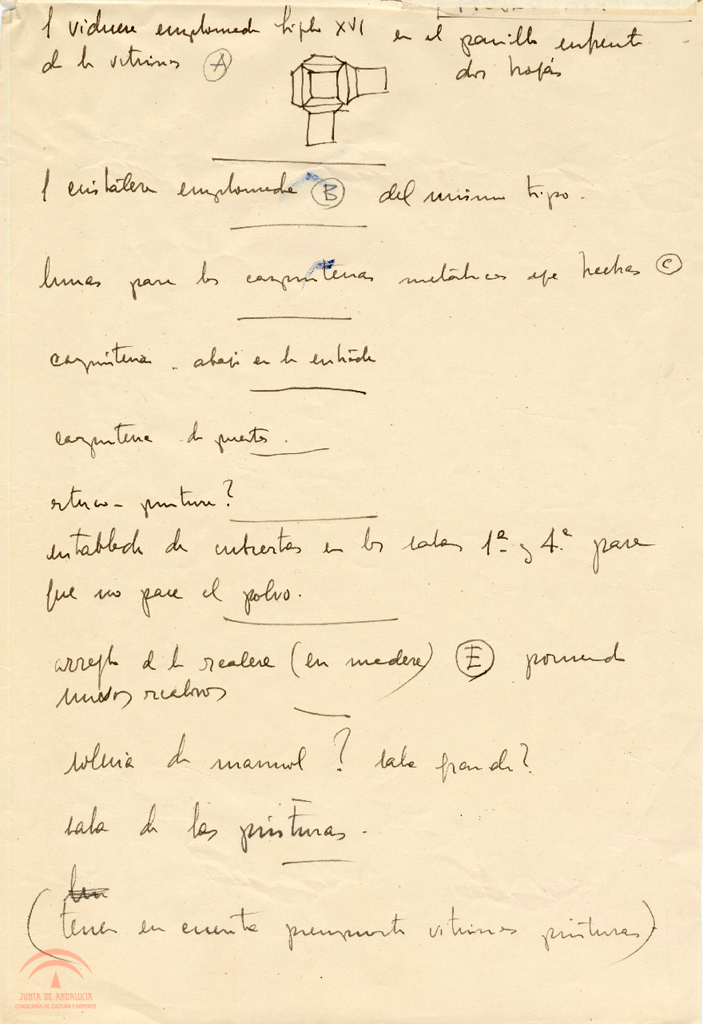 1 vidriera emplomada siglo XVI en el pasillo enfrente
de la vitrinas A dos hojas
1 cristalera emplomada B del mismo tipo.
lunas para las carpinterias metálicas eje hechas C
carpinteria. abajo en la entrada
carpinteria de puertas.
estuco - pintura?
entablado de cubiertas en las salas 1ª y 4ª para
que no pase el polvo.
arreglo de la escalera (en madera) E poniendo
nuevos escalones
soleria de marmol? sala grande?
sala de las pinturas.
(tener en cuenta presupuesto vitrinas pinturas)
JUNTA DE ANDALUCIA
CONSEJERÍA DE CULTURA Y DEPORTE